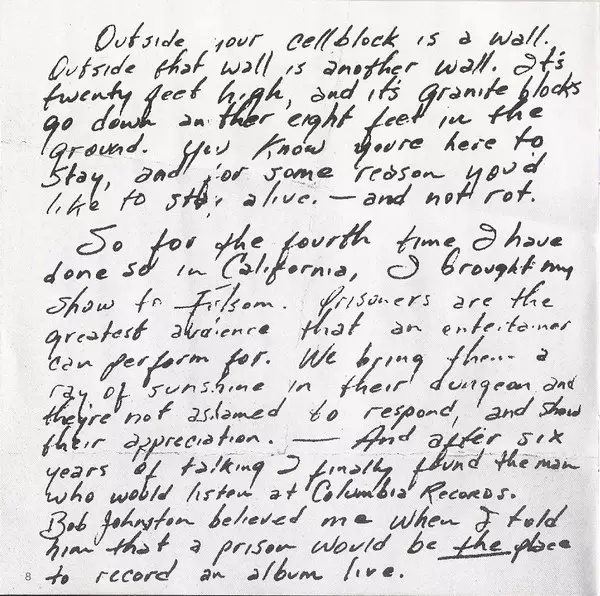 Outside your cellblock is a wall.
Outside that wall is another wall. It's
twenty feet high, and it's granite blocks
go down another eight feet in the
ground. You know you're here to
stay, and for some reason you'd
like to stay alive. — and not rot.
So for the fourth time, I have
done so in California, I brought my
show to Folsom. Prisoners are the
greatest audience that an entertainer
can perform for. We bring them a
ray of sunshine in their dungeon and
they're not ashamed to respond, and show
their appreciation. — And after six
years of talking I finally found the man
who would listen at Columbia Records.
Bob Johnston believed me when I told
him that a prison would be the place
to record an album live.
8